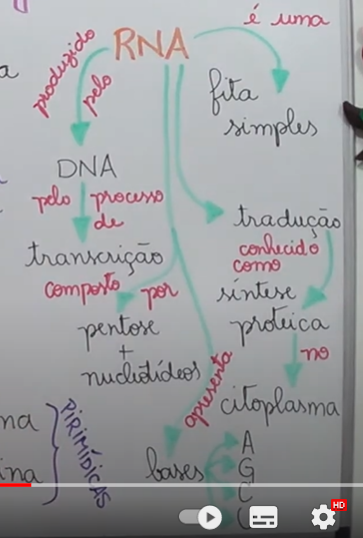 RNA
é uma
fita
simples
produzido
pelo
DNA
pelo processo
de
transcrição
composto por
pentose
+
nucleotídeos
tradução
conhecido
como
síntese
proteica
no
citoplasma
apresenta
bases
A
G
C
PIRIMÍDICAS
HD